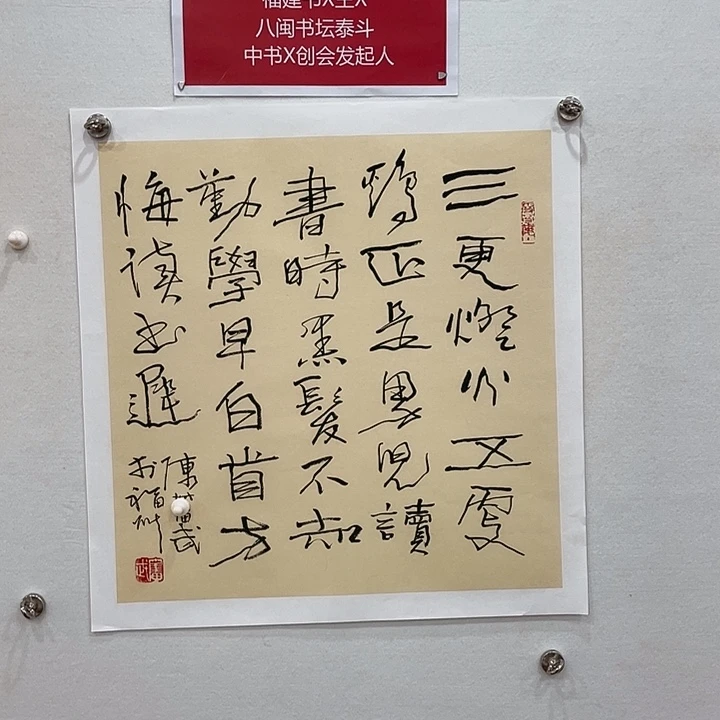 福建书X主X
八闽书坛泰斗
中书X创会发起人
三更燈火五更
鷄正是男兒讀
書時黑髮不知
勤學早白首方
悔讀书遲
陳奮武
於福州